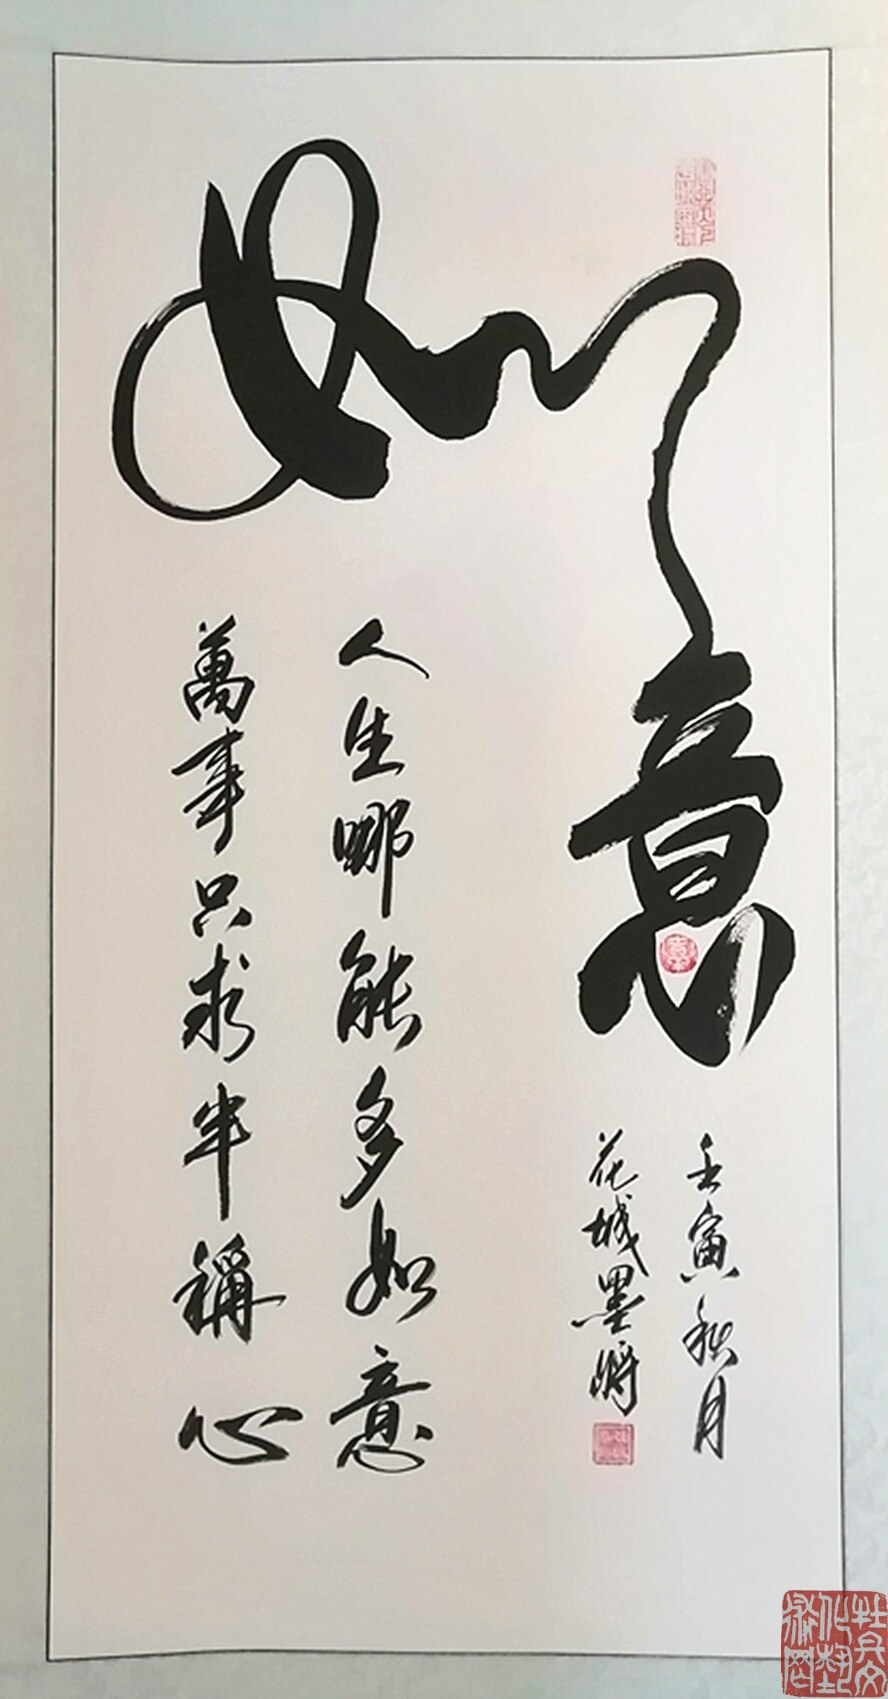 如意
人生哪能多如意
萬事只求半稱心
壬寅秋月
花城墨將